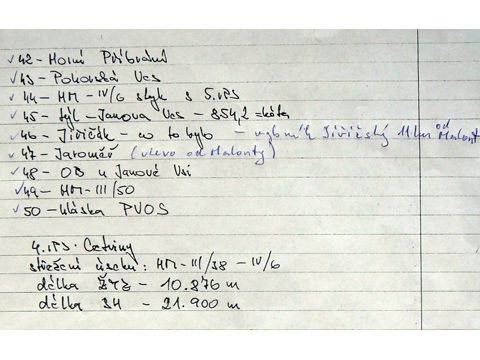 ✓42 - Horní Příbraní
✓43 - Pohorská Ves
✓44 - HM - IV/6 styk s 5.rPS
✓45 - týl - Janova Ves - 854,2 = kóta
✓46 - Jiřičák - co to bylo - rybník Jiřičský 11 km od Malont
✓47 - Jaroměř (vlevo od Malonty)
✓48 - OB u Janové Vsi
✓49 - HM - III/50
✓50 - hláska PVOS
4.rPS. Cetviny
střežení úseku: HM - III/38 - IV/6
délka ŽTZ - 10.876 m
délka SH - 21.900 m